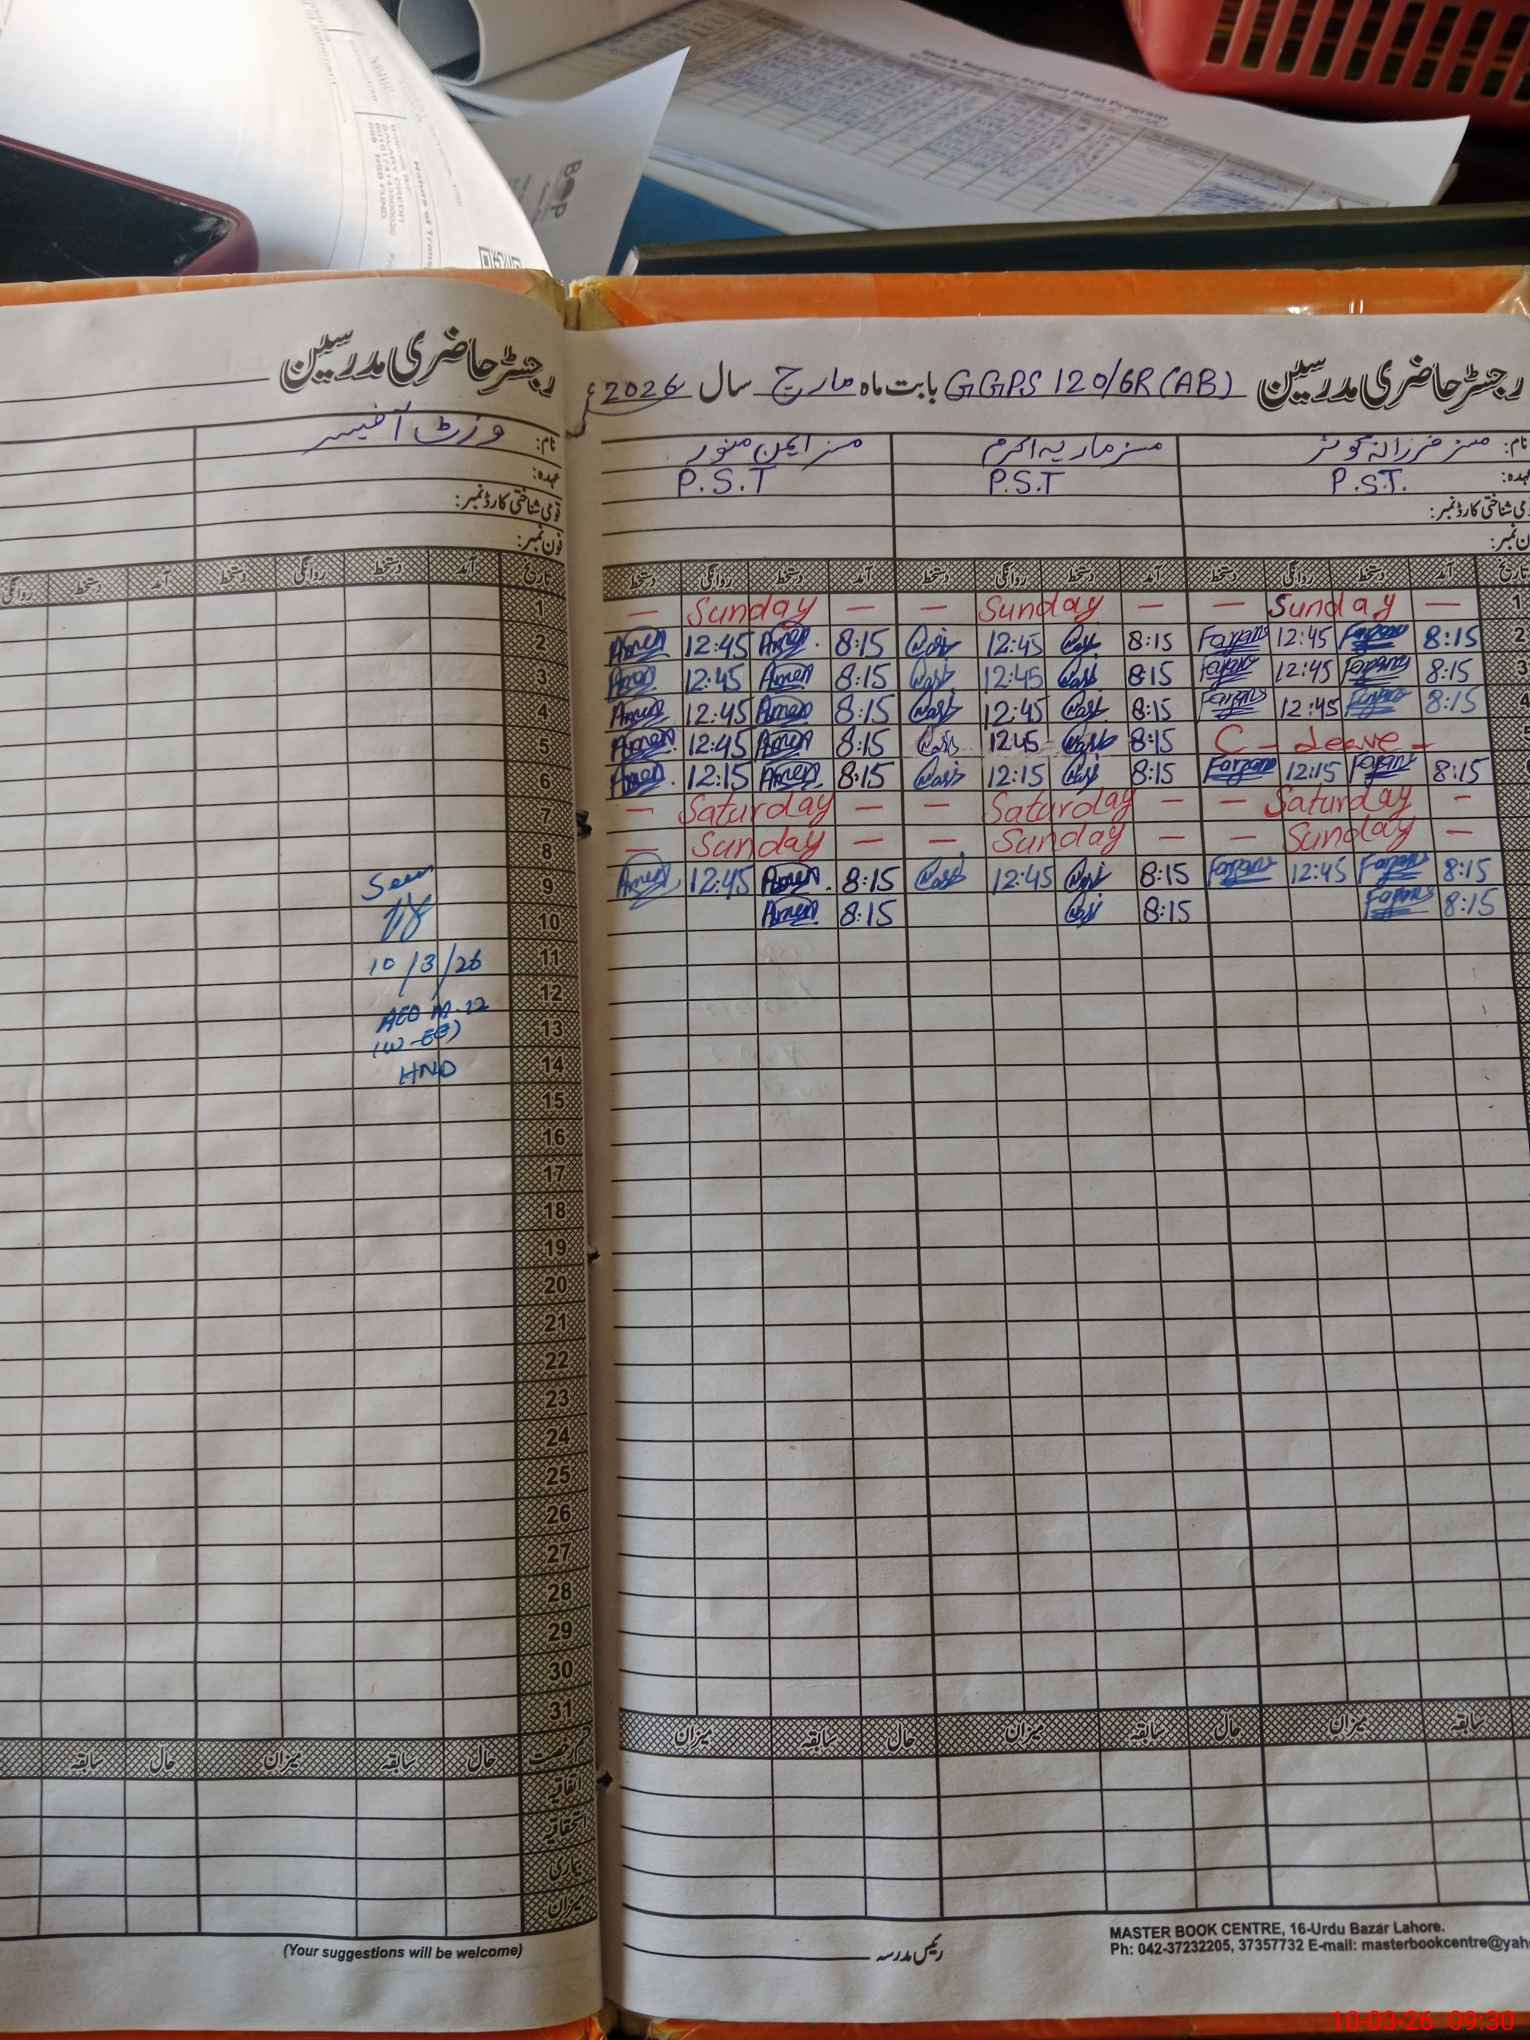 Stock Register School Meal Program
BOP
رجسٹر حاضری مدرسین
نام: وزٹ آفیسر
عہدہ:
قومی شناختی کارڈ نمبر:
فون نمبر:
تاریخ آمد دستخط روانگی دستخط آمد دستخط روانگی
1
2
3
4
5
6
7
8
9 Seen
10
11 10/3/26
12
13
14 HND
15
16
17
18
19
20
21
22
23
24
25
26
27
28
29
30
31
قسم رخصت حال سابقہ میزان حال سابقہ
اتفاقیہ
استحقاقیہ
بیماری
میزان
(Your suggestions will be welcome)
رجسٹر حاضری مدرسین GGPS 120/6R (AB) بابت ماہ مارچ سال 2026ء
نام: مسز فرزانہ کوثر مسز ماریہ اکرم مسز ایمن منور
عہدہ: P.S.T. P.S.T P.S.T
قومی شناختی کارڈ نمبر:
فون نمبر:
تاریخ آمد دستخط روانگی دستخط آمد دستخط روانگی دستخط آمد دستخط روانگی دستخط
— Sunday — — Sunday — — Sunday — 1
Amen 12:45 Amen 8:15 12:45 8:15 12:45 8:15 2
Amen 12:45 Amen 8:15 12:45 8:15 12:45 8:15 3
Amen 12:45 Amen 8:15 12:45 8:15 12:45 8:15 4
Amen 12:45 Amen 8:15 12:45 8:15 C - Leave - 5
Amen 12:15 Amen 8:15 12:15 8:15 12:15 8:15 6
— Saturday — — Saturday — — Saturday —
— Sunday — — Sunday — — Sunday —
Amen 12:45 Amen 8:15 12:45 8:15 12:45 8:15
Amen 8:15 8:15 8:15
سابقہ میزان حال سابقہ میزان حال سابقہ میزان
رئیس مدرسہ
MASTER BOOK CENTRE, 16-Urdu Bazar Lahore.
Ph: 042-37232205, 37357732 E-mail: masterbookcentre@yah
10-03-26 09:30